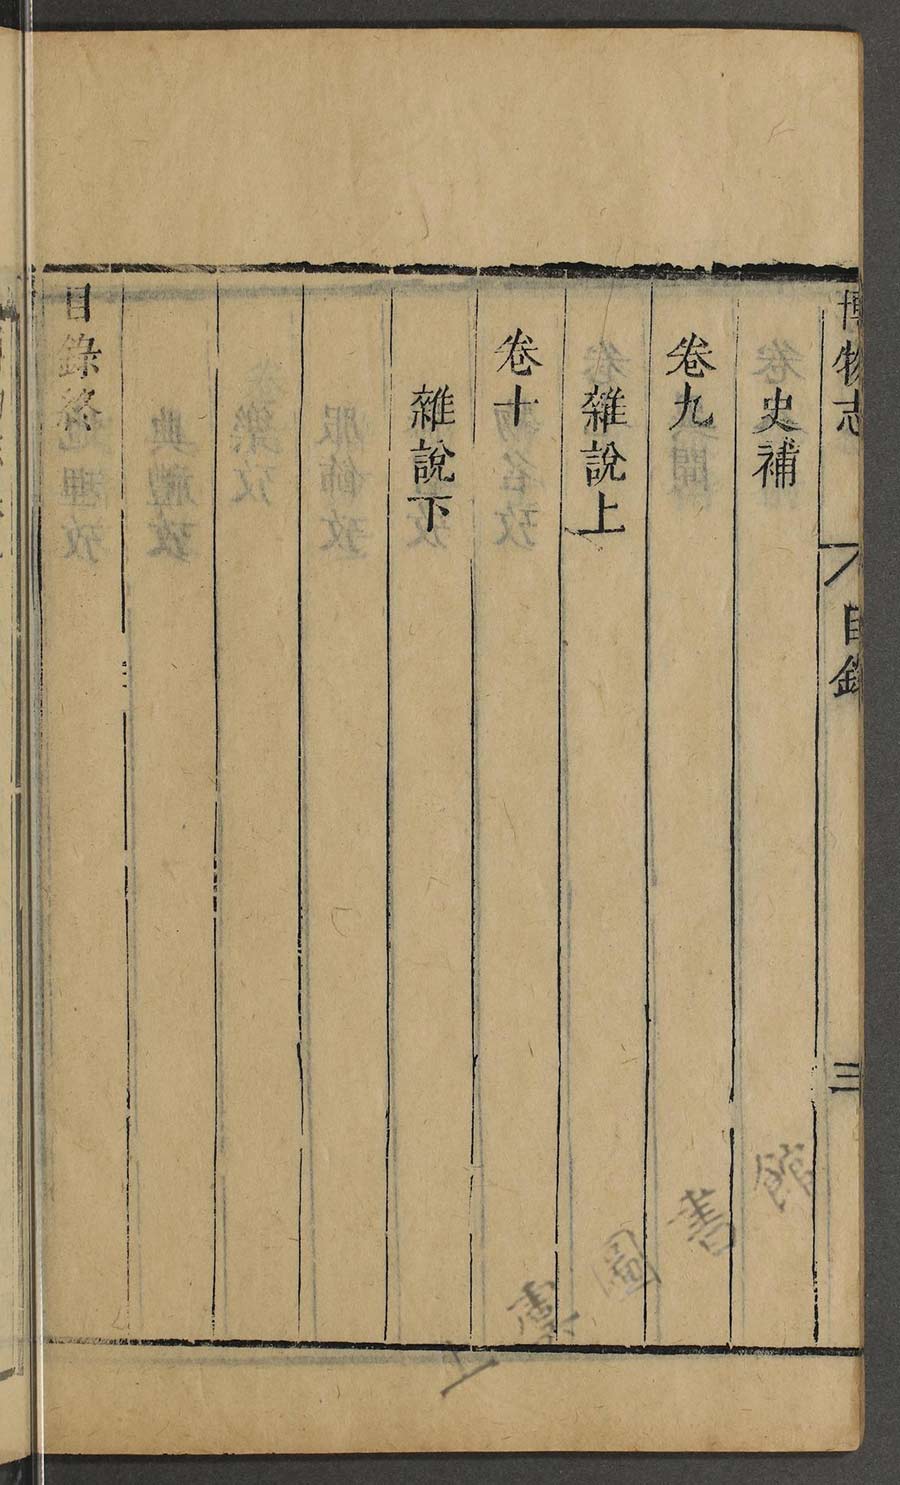 博物志 目錄 三
史補
卷九
雜說上
卷十
雜說下
目錄終
上虞圖書館